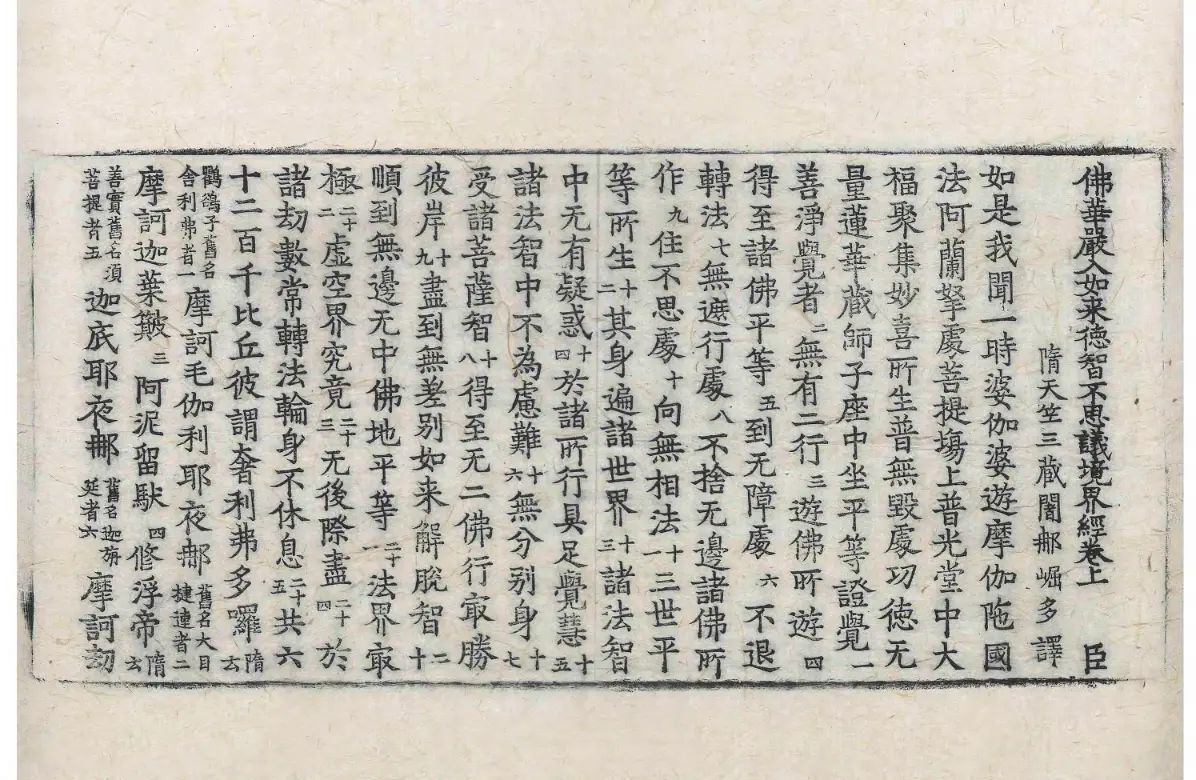 佛華嚴入如来德智不思議境界經卷上 臣
隋天竺三藏闍那崛多譯
如是我聞一時婆伽婆遊摩伽陁國
法阿蘭拏處菩提場上普光堂中大
福聚集妙喜所生普無毀處功德无
量蓮華藏師子座中坐平等證覺一
善淨覺者二無有二行三遊佛所遊四
得至諸佛平等五到无障處六不退
轉法七無遮行處八不捨无邊諸佛所
作九住不思處十向無相法十一三世平
等所生十二其身遍諸世界十三諸法智
中无有疑惑十四於諸所行具足覺慧十五
諸法智中不為慮難十六無分别身十七
受諸菩薩智十八得至无二佛行㝡勝
彼岸十九盡到無差别如来解脫智二十
順到無邊无中佛地平等二十一法界㝡
極二十二虛空界究竟二十三无後際盡二十四於
諸劫數常轉法輪身不休息二十五共六
十二百千比丘彼謂奢利弗多囉隋云
鸜鵒子舊名舍利弗者一摩訶毛伽利耶夜那舊名大目揵連者二
摩訶迦葉簸三阿泥留馱四修浮帝隋云
善實舊名須菩提者五迦底耶夜那舊名迦旃延者六摩訶劫